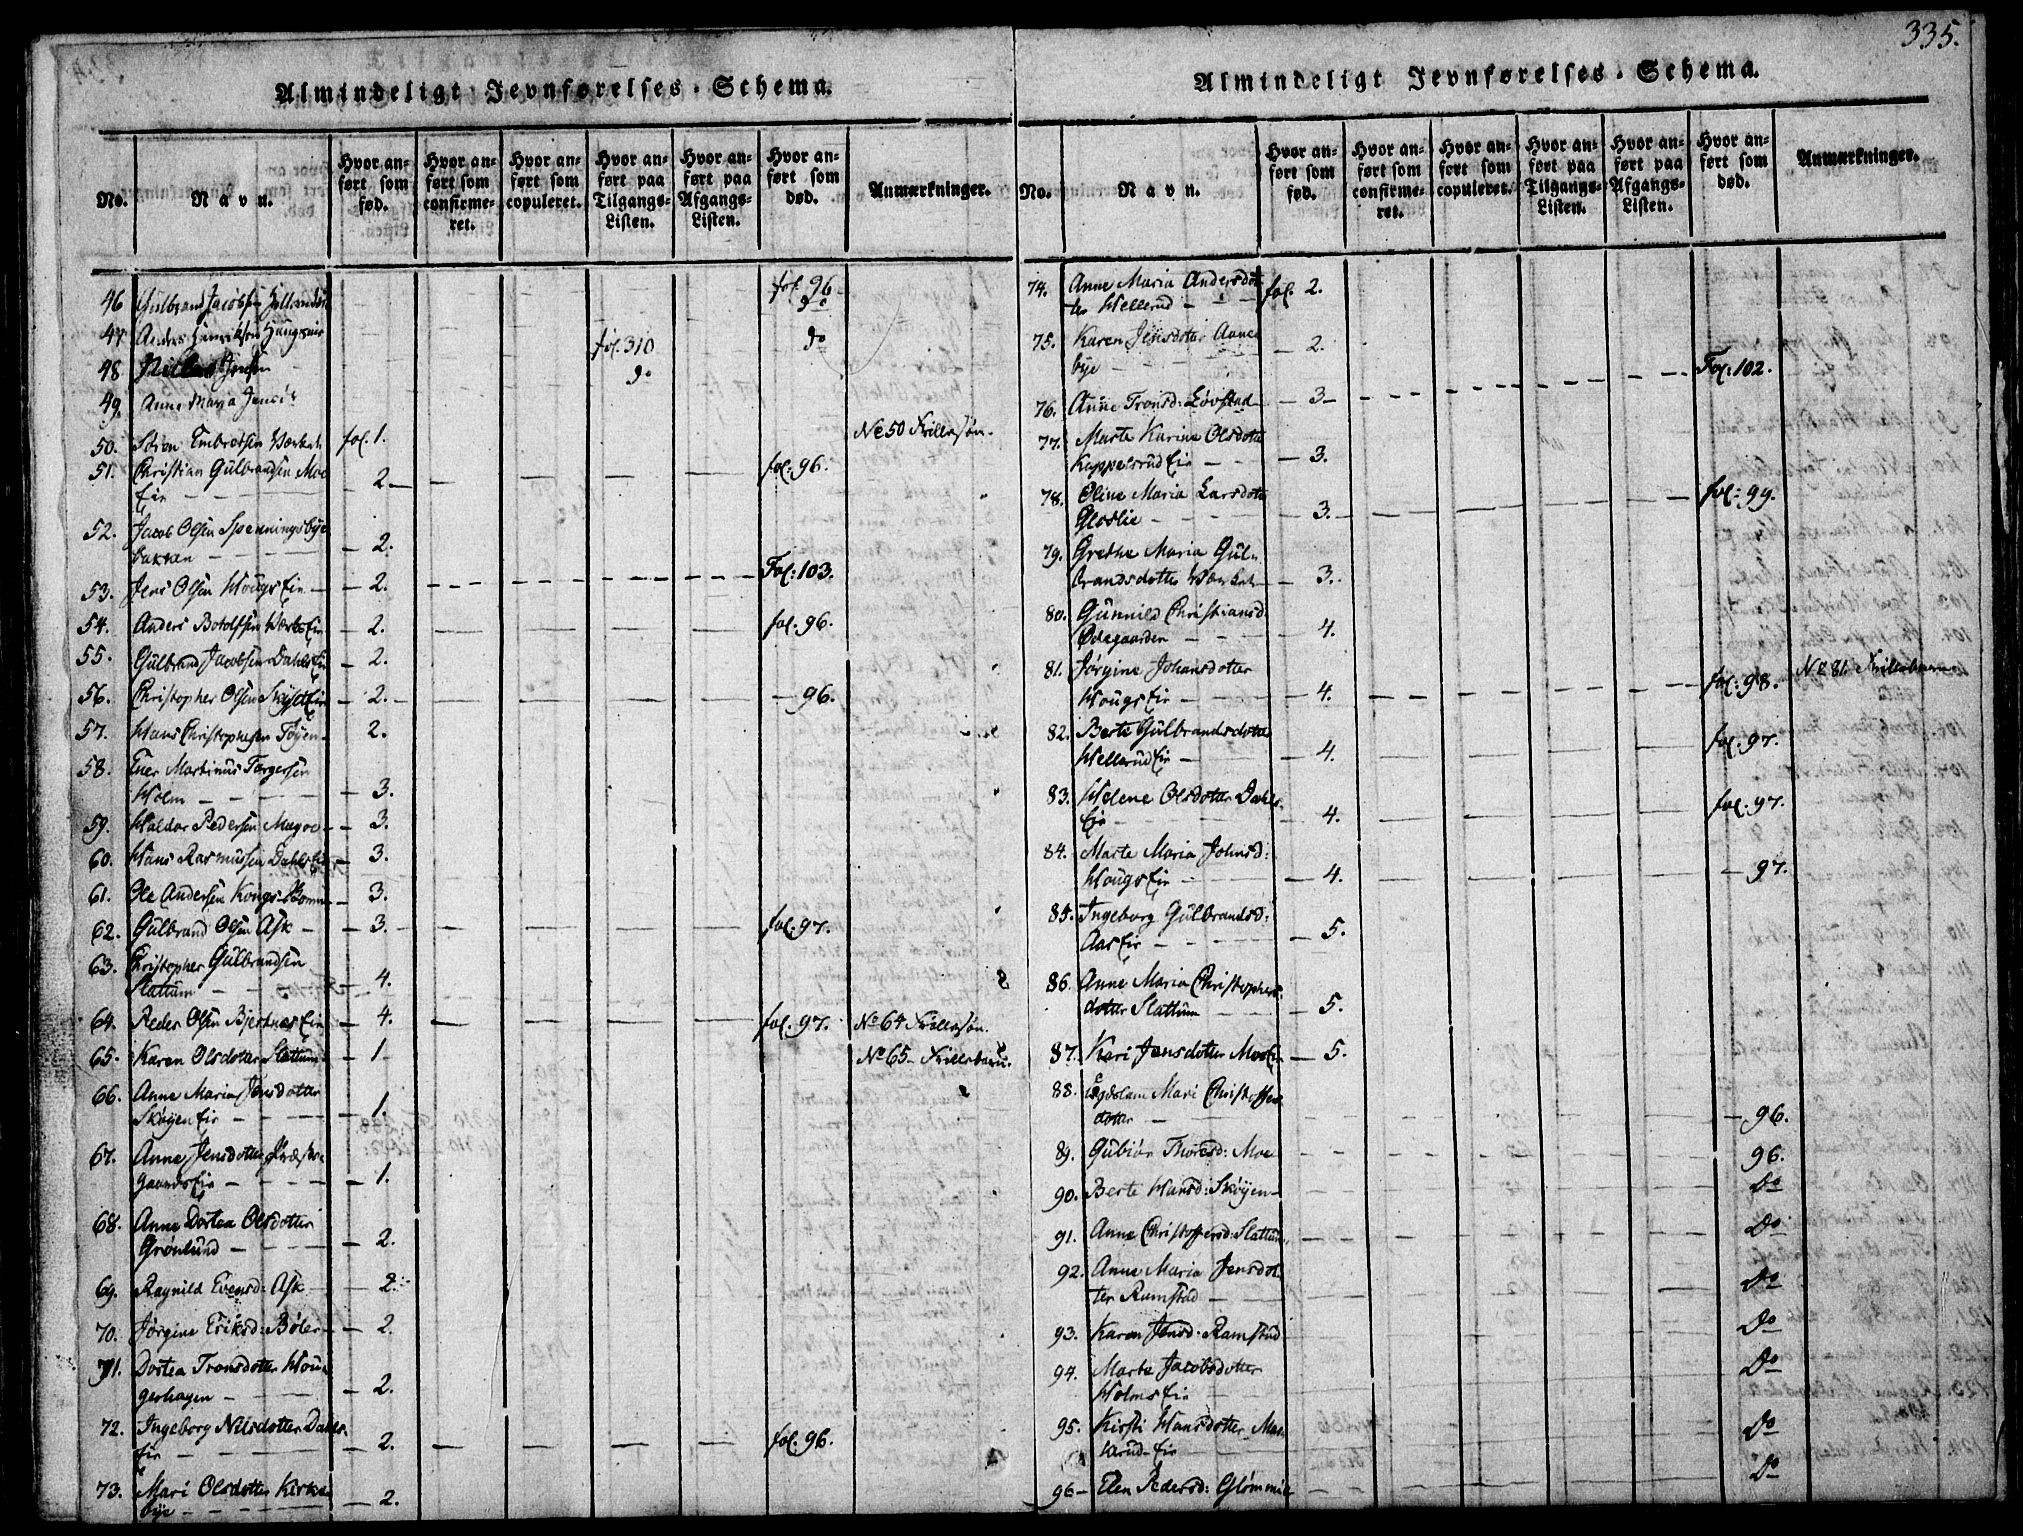 335.
Almindeligt Jevnførelses-Schema.
No. Navn. Hvor anført som fød. Hvor anført som confirmeret. Hvor anført som copuleret. Hvor anført paa Tilgangs-Listen. Hvor anført paa Afgangs-Listen. Hvor anført som død. Anmærkninger.
46 Gulbrand Jacobsen fol. 96
47 Anders Henriksen do
48 Jensen fol. 310 do
49. Anne Maria do
50. Embretsen fol. 1. No 50 Frillesøn.
51. Christian Gulbrandsen Moe
Eie — 2. fol. 96.
52. Jacob Olsen Spenningsbye
bakken — 2.
53. Jens Olsen Hougs Eie — 2. Fol: 103.
54. Anders Eie — 2. fol. 96.
55. Gulbrand Jacobsen Dahls Eie — 2.
56. Christopher Olsen Eie — 2. 96.
57. Hans Christophersen Tøyen 2.
58. Iver Martinus Torgersen
Holm — 3.
59. Haldor Pedersen — 3.
60. Hans Rasmussen Dahls Eie — 3.
61. Ole Andersen — 3.
62. Gulbrand Olsen Ask — 3. fol. 97.
63. Christopher Gulbrandsen
Slattum — 4.
64. Peder Olsen Bjertnes Eie — 4. fol. 97. No 64 Frillesøn.
65. Karen Olsdotter Slattum — 1 No 65 Frillebarn.
66. Anne Maria Jensdotter
Skøyen Eie — 1.
67. Anne Jensdotter Præste
gaards Eie — 1.
68. Anne Dortea Olsdotter
Grønlund — 2.
69. Ragnild Evensd: Ask — 2.
70. Jørgine Eriksd: Bøler — 2.
71. Dortea Tronsdotter Hou
gerhagen — 2.
72. Ingeborg Nilsdotter Dahls
Eie — 2. fol. 96.
73. Mari Olsdotter Kirke
bye — 2.
Almindeligt Jevnførelses-Schema.
No. Navn. Hvor anført som fød. Hvor anført som confirmeret. Hvor anført som copuleret. Hvor anført paa Tilgangs-Listen. Hvor anført paa Afgangs-Listen. Hvor anført som død. Anmærkninger.
74. Anne Maria Andersdot
ter Hellerud fol. 2.
75. Karen Jensdotter Aane
bye — 2.
76. Anne Tronsd: Løvstad — 3 Fol: 102.
77. Marte Karine Olsdotter
Kappelsrud Eie — 3.
78. Oline Maria Larsdotter
Gloslie — 3. fol: 99.
79. Grethe Maria Gul-
brandsdotter — 3.
80. Gunnild Christiansd:
Ødegaarden — 4.
81. Jørgine Johansdotter
Hougs Eie — 4. fol: 98. No 81. Frillebarn
82. Berte Gulbrandsdotter
Hellerud Eie — 4. fol. 97.
83. Helene Olsdotter Dahls
Eie — 4. fol. 97.
84. Marte Maria Johnsd:
Hougs Eie — 4. 97.
85. Ingeborg Gulbrandsd:
Aas Eie — 5.
86. Anne Maria Christophers
dotter Slattum — 5.
87. Kari Jensdotter Moe Eie — 5.
88. Mari Christoffers
dotter — 96.
89. Gubiør Thoresd: Moe 96.
90. Berte Hansd: Skøyen Do
91. Anne Christoffersd: Slattum Do
92. Anne Maria Jensdot
ter Ramstad Do
93. Karen Jensd: Ramstad Do
94. Marte Jacobsdotter
Holms Eie Do
95. Kirsti Hansdotter
Eie Do
96 Elen Pedersd: Glømmie Do